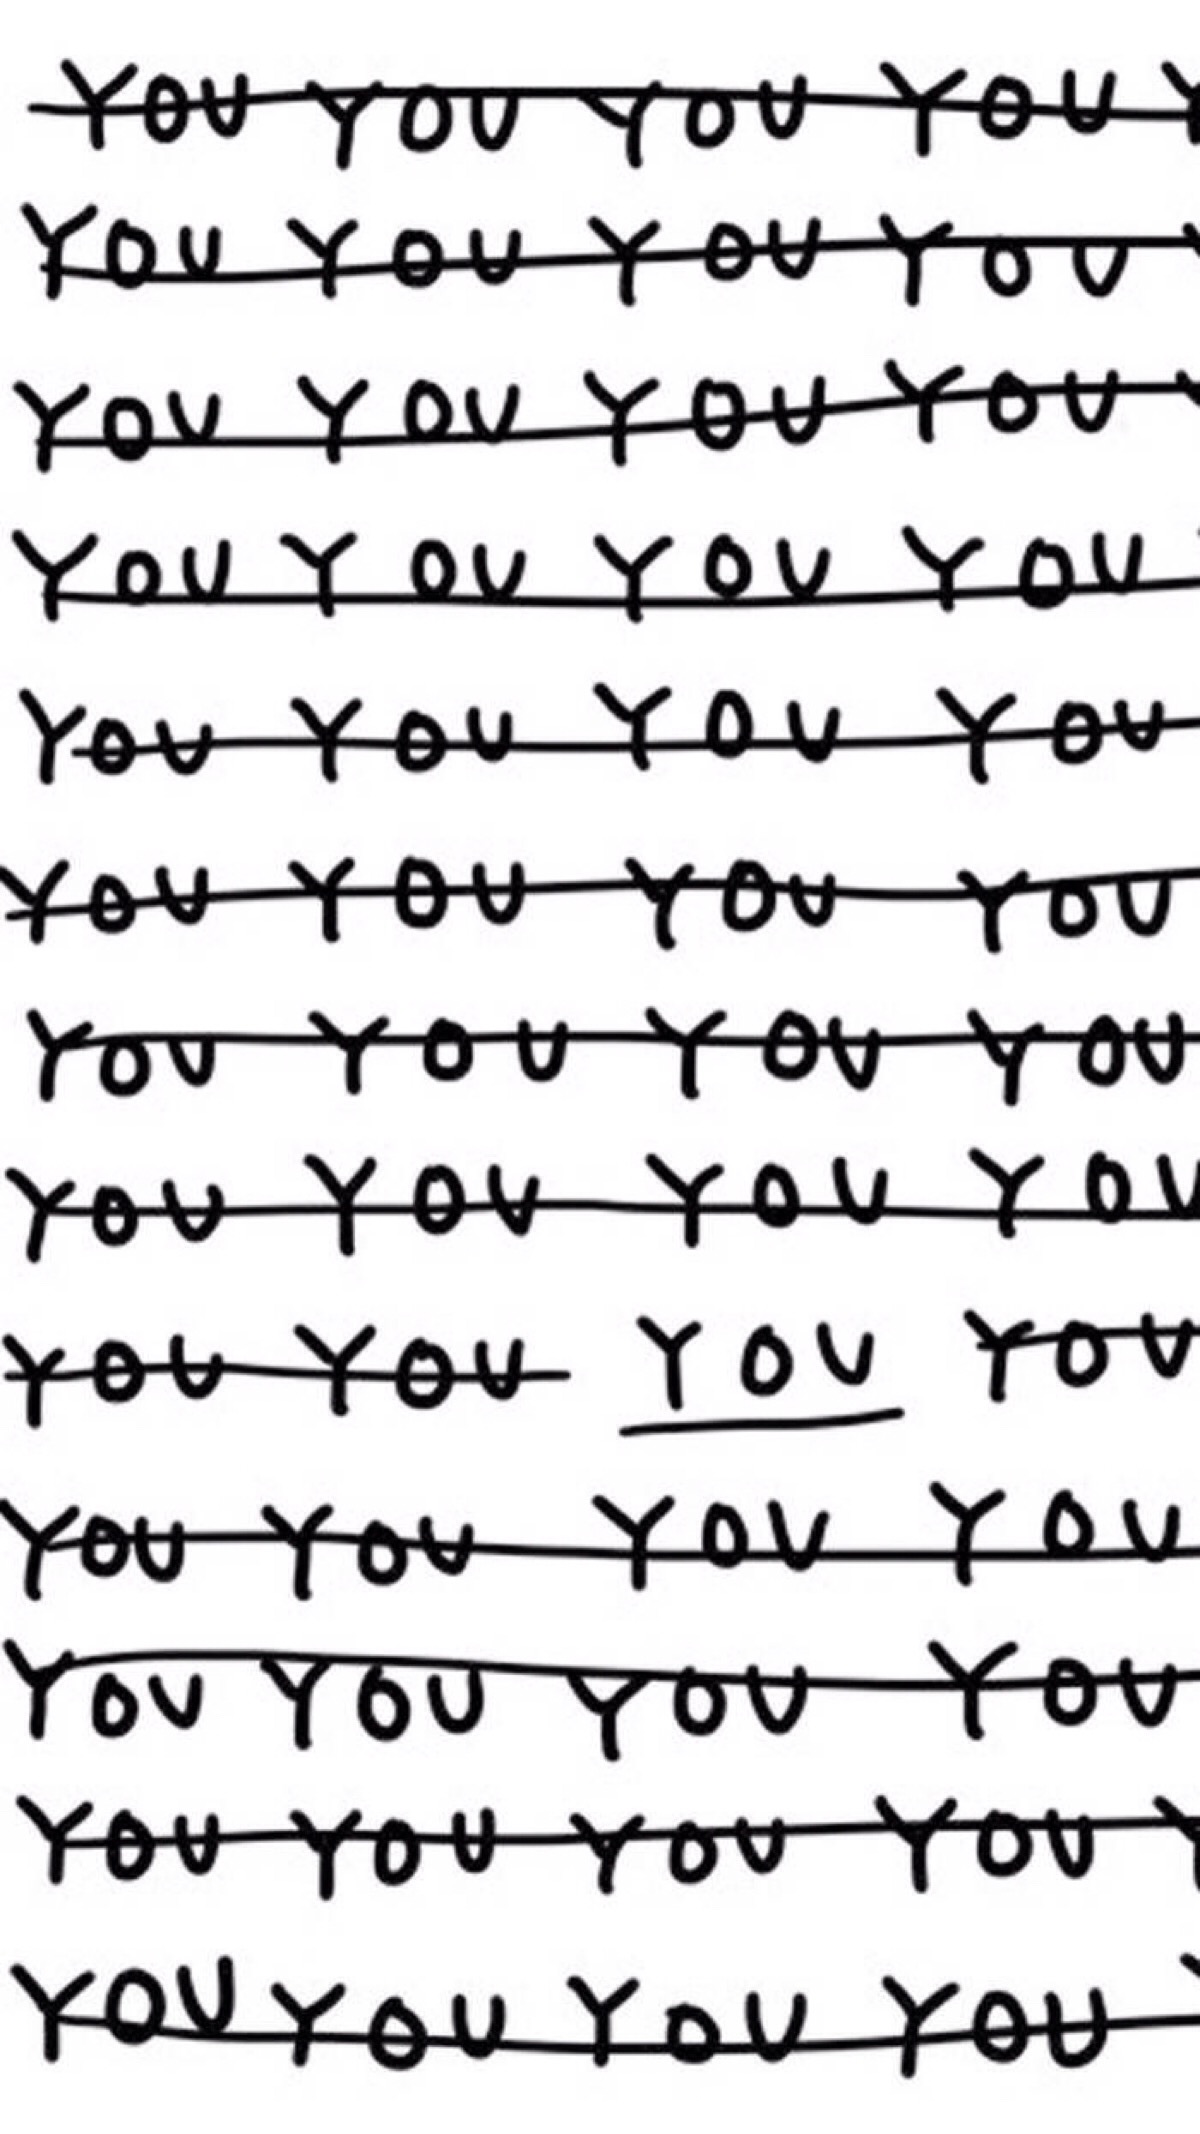 YOU YOU YOU YOU
YOU YOU YOU YOU
YOU YOU YOU YOU
YOU YOU YOU YOU
YOU YOU YOU YOU
YOU YOU YOU YOU
YOU YOU YOU YOU
YOU YOU YOU YOU
YOU YOU YOU YOU
YOU YOU YOU YOU
YOU YOU YOU YOU
YOU YOU YOU YOU
YOU YOU YOU YOU